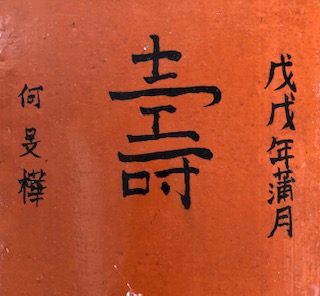 戊戌年蒲月
壽
何旻樺